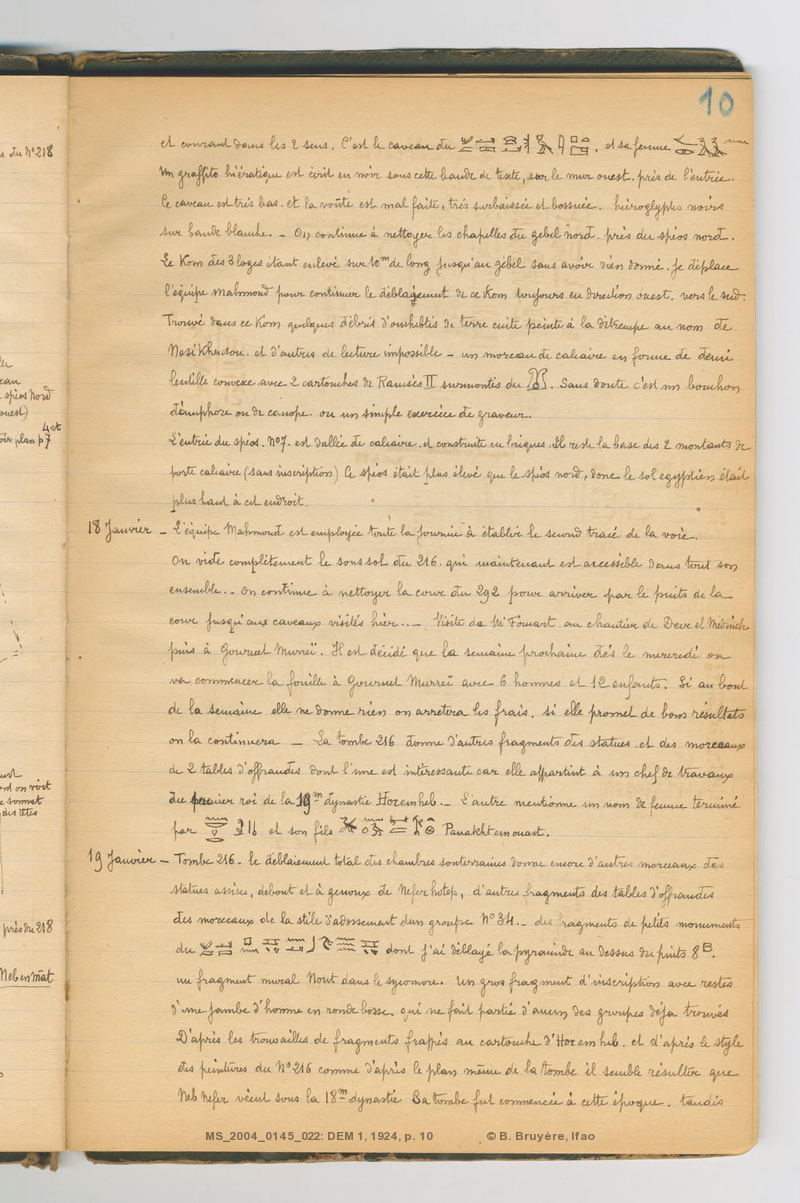 10
s du N° 218
et courant dans les 2 sens. C'est le caveau du . et sa femme
Un graffito hiératique est écrit en noir sous cette bande de texte, sur le mur ouest. près de l'entrée.
Ce caveau est très bas. et la voûte est mal faite, très surbaissée et bossuée. hiéroglyphes noirs
sur bande blanche. – On continue à nettoyer les chapelles du gebel nord. près du spéos nord.
Le Kom des 3 loges étant enlevé sur 10m de long jusqu'au gébel sans avoir rien donné. Je déplace
l'équipe Mahmoud pour continuer le déblaiement de ce Kom toujours en direction ouest. vers le sud.
Trouvé dans ce Kom quelques débris d'oushebtis de terre cuite peinte à la détrempe au nom de
Nesi Khonsou. et d'autres de lecture impossible – un morceau de calcaire en forme de demi
lentille convexe avec 2 cartouches de Ramsès II surmontés du . Sans doute c'est un bouchon
d'amphore ou de canope. ou un simple exercice de graveur.
L'entrée du spéos. N° 7. est dallée de calcaire. et construite en briques. Il reste la base des 2 montants de
porte calcaire (sans inscription) Ce spéos était plus élevé que le spéos nord, donc le sol egyptien était
plus haut à cet endroit.
18 Janvier – L'équipe Mahmoud est employée toute la journée à établir le second tracé de la voie.
On vide complètement le sous sol du 216. qui maintenant est accessible dans tout son
ensemble. – On continue à nettoyer la cour du 292 pour arriver par le puits de la
cour jusqu'aux caveaux visités hier.. – Visite de Mr Foucart au chantier de Deir el Médineh
puis à Gournet Murreï. Il est décidé que la semaine prochaine dès le mercredi on
va commencer la fouille à Gournet Murreï avec 6 hommes et 12 enfants. Si au bout
de la semaine elle ne donne rien on arretera les frais. si elle promet de bons résultats
on la continuera – La tombe 216 donne d'autres fragments des statues. et des morceaux
de 2 tables d'offrandes dont l'une est intéressante car elle appartint à un chef de travaux
du premier roi de la 19m dynastie Horemheb. – L'autre mentionne un nom de femme terminé
par et son fils Panakhtemouast.
19 Janvier – Tombe 216. le déblaiement total des chambres souterraines donne encore d'autres morceaux des
statues assises, debout et à genoux de Nefer hotep, d'autres fragments des tables d'offrandes
des morceaux de la stèle d'adossement d'un groupe N° 34. – des fragments de petits monuments
du dont j'ai déblayé la pyramide au dessus du puits 8B.
un fragment mural Nout dans le sycomore. Un gros fragment d'inscription avec restes
d'une jambe d'homme en ronde bosse. qui ne fait partie d'aucun des groupes déjà trouvés
D'après les trouvailles de fragments frappés au cartouche d'Horemheb. et d'après le style
des peintures du N° 216 comme d'après le plan même de la tombe il semble résulter que
Neb Nefer vécut sous la 18m dynastie Sa tombe fut commencée à cette époque. tandis
spéos Nord
ouest)
4 et
voir plan p 7
on voit
sommet
des têtes
près du 218
Neb en mât
MS_2004_0145_022: DEM 1, 1924, p. 10 © B. Bruyère, Ifao